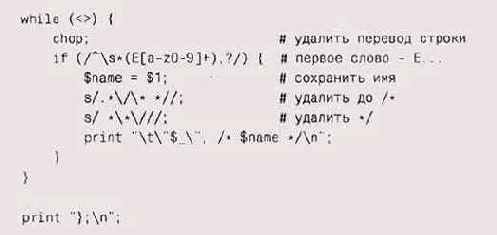 while (<>) {
    chop;                         # удалить перевод строки
    if (/^\s*(E[a-z0-9]+),?/) {   # первое слово - E...
        $name = $1;               # сохранить имя
        s/.*\/\* *//;             # удалить до /*
        s/ *\*\///;               # удалить */
        print "\t\"$_\", /* $name */\n";
    }
}

print "};\n";